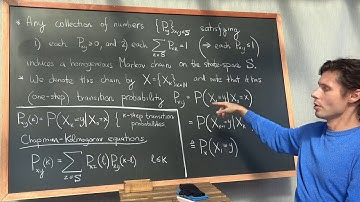 * Any collection of numbers {P_xy}_{x,y∈S} satisfying
1) each P_xy ≥ 0, and 2) each ∑_{z∈S} P_xz = 1 (⇒ each P_xy ≤ 1)
induces a homogeneous Markov chain on the state-space S.
* We denote this chain by X = {X_k}_{k∈ℕ} and note that it has
(one-step) transition probability P_xy = P(X_1=y|X_0=x)
P_xy(k) = P(X_k=y|X_0=x) { k-step transition probabilities
Chapman-Kolmogorov equations
P_xy(k) = ∑_{z∈S} P_xz(l) P_zy(k-l) l≤k
= P(X_{k+1}=y|X_k
≜ P_x(X_1=y)